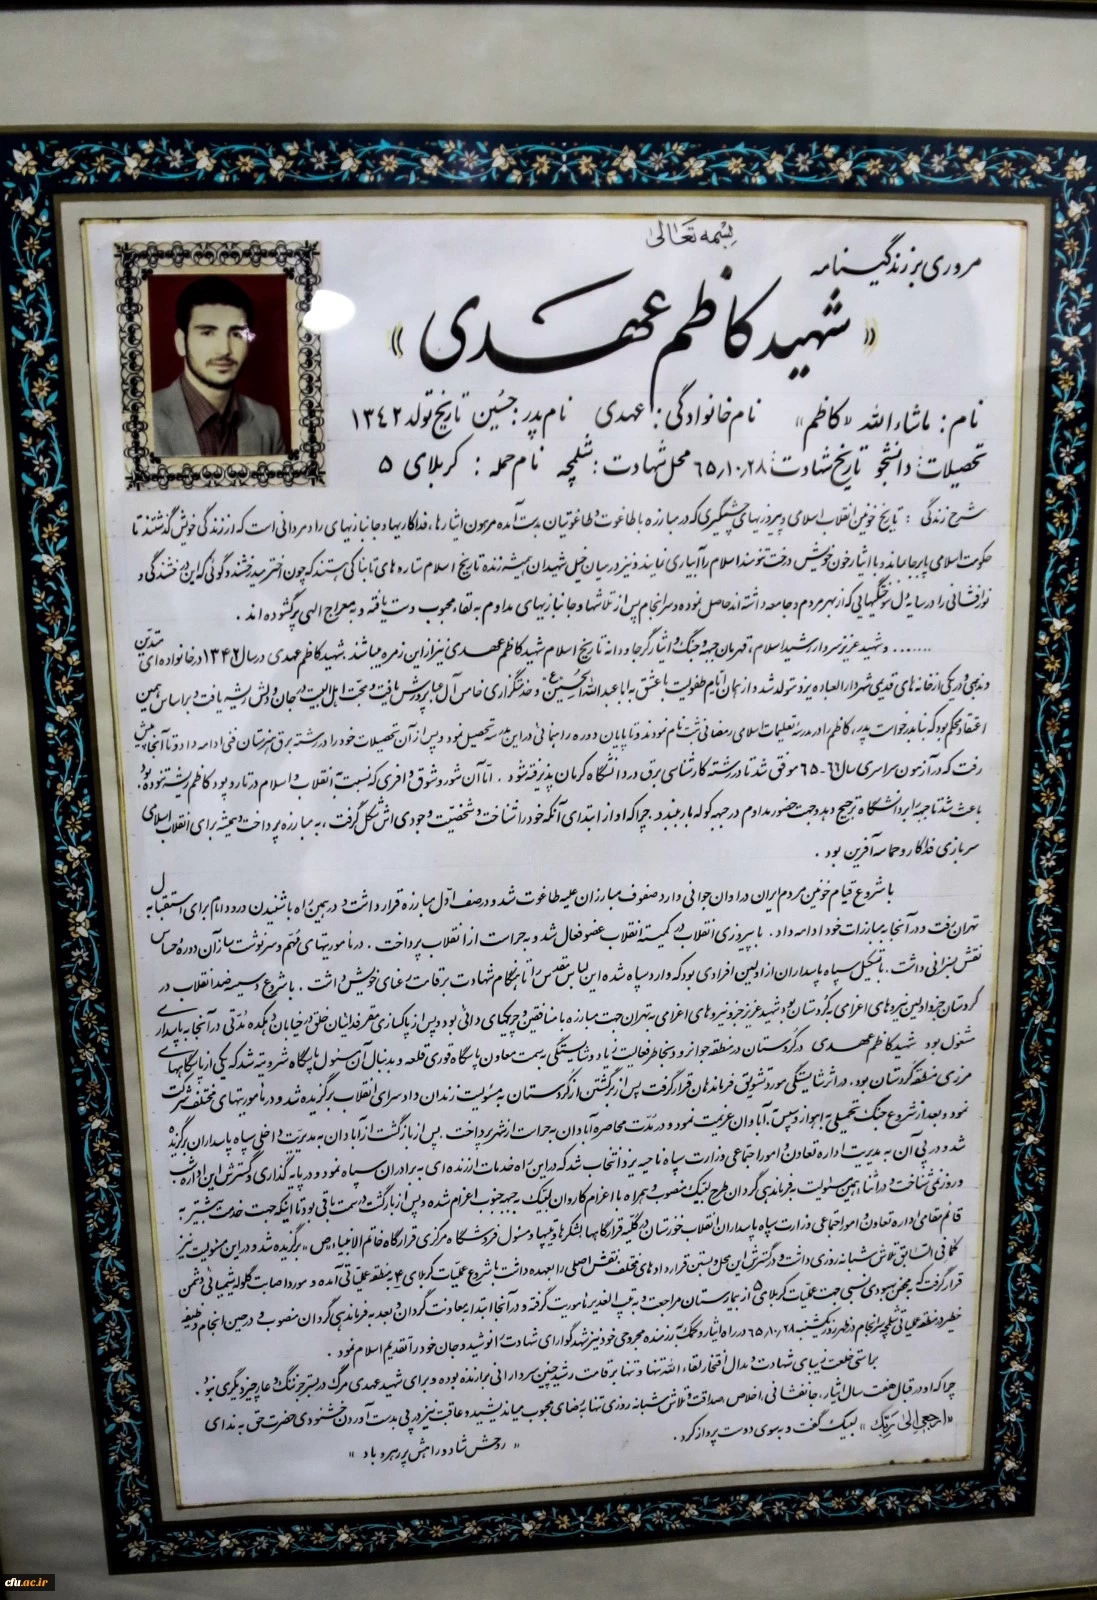 بسمه تعالی
مروری بر زندگینامه
« شهید کاظم عهدی »
نام: ماشاءالله «کاظم» نام خانوادگی: عهدی نام پدر: حسین تاریخ تولد ۱۳۴۲
تحصیلات: دانشجو تاریخ شهادت: ۶۵/۱۰/۲۸ محل شهادت: شلمچه نام حمله: کربلای ۵
شرح زندگی: تاریخ خونین انقلاب اسلامی و پیروزیهای چشمگیری که در مبارزه با طاغوت و طاغوتیان بدست آمده مرهون ایثارها، فداکاریها و جانبازیهای رادمردانی است که از زندگی خویش گذشتند تا
حکومت اسلامی پابرجا بماند و با ایثار خون خویش درخت تنومند اسلام را آبیاری نمایند و نیز در میان خیل شهیدان همیشه زنده تاریخ اسلام ستاره های تابناکی هستند که چون اختر میدرخشند و گوئی که این درخشندگی و
نورافشانی را در سایه دل سوختگیهائی که از بهر مردم و جامعه داشته اند حاصل نموده و سرانجام پس از تلاشها و جانبازیهای مداوم به لقاء محبوب دست یافته و به معراج الهی پر گشوده اند.
....... و شهید عزیز سردار رشید اسلام، قهرمان جبهه و جنگ و ایثارگر جاودانه تاریخ اسلام شهید کاظم عهدی نیز از این زمره میباشند. شهید کاظم عهدی در سال ۱۳۴۲ در خانواده ای متدین
و مذهبی و در یکی از خانه های قدیمی شهر دارالعباده یزد متولد شد و از همان ایام طفولیت با عشق به اباعبدالله الحسین «ع» و خدمتگزاری خامس آل عبا پرورش یافت و محبت اهل البیت در جان و دلش ریشه یافت و بر اساس همین
اعتقاد محکم بود که بنا بدرخواست پدر، کاظم را در مدرسه تعلیمات اسلامی رمضانی ثبت نام نمودند و تا پایان دوره راهنمائی در این مدرسه تحصیل نمود و پس از آن تحصیلات خود را در رشته برق هنرستان فنی ادامه داد و تا آنجا پیش
رفت که در آزمون سراسری سال ۶۶-۶۵ موفق شد تا در رشته کارشناسی برق در دانشگاه کرمان پذیرفته شود. اما آن شور و شوق وافری که نسبت به انقلاب و اسلام در تار و پود کاظم ریشه نموده بود
باعث شد تا جبهه را بر دانشگاه ترجیح دهد و جهت حضور مداوم در جبهه کوله بار ببندد. چرا که او از ابتدای آنکه خود را شناخت و شخصیت وجودی اش شکل گرفت، به مبارزه پرداخت و همیشه برای انقلاب اسلامی
سربازی فداکار و حماسه آفرین بود.
با شروع قیام خونین مردم ایران در اوان جوانی وارد صفوف مبارزان علیه طاغوت شد و در صف اول مبارزه قرار داشت و در همین راه با شنیدن ورود امام برای استقبال به
تهران رفت و در آنجا به مبارزات خود ادامه داد. با پیروزی انقلاب در کمیته انقلاب عضو فعال شد و به حراست از انقلاب پرداخت. در ماموریتهای مهم و سرنوشت ساز آن دوره حساس
نقش بسزائی داشت. با تشکیل سپاه پاسداران از اولین افرادی بود که وارد سپاه شده این لباس مقدس را تا هنگام شهادت بر قامت رعنای خویش داشت. با شروع دسیسه ضد انقلاب در
کردستان جزو اولین نیروهای اعزامی به کردستان بود شهید عزیز جزو نیروهای اعزامی به تهران جهت مبارزه با منافقین و چریکهای فدائی بود و پس از پاکسازی مقر فدائیان خلق در خیابان میکده مدتی در آنجا به پاسداری
مشغول بود شهید کاظم عهدی در کردستان در منطقه جوانرود بخاطر فعالیت زیاد و شایستگی به سمت معاون پاسگاه قوری قلعه و بدنبال آن مسئول پاسگاه شروینه شد که یکی از پاسگاههای
مرزی منطقه کردستان بود. در اثر شایستگی مورد تشویق فرماندهان قرار گرفت پس از برگشتن از کردستان به مسئولیت زندان دادسرای انقلاب برگزیده شد و در ماموریتهای مختلف شرکت
نمود و بعد از شروع جنگ تحمیلی به اهواز و سپس آبادان عزیمت نمود و در مدت محاصره آبادان به حراست از شهر پرداخت. پس از بازگشت از آبادان به مدیریت داخلی سپاه پاسداران برگزیده
شد و در پی آن به مدیریت اداره تعاون و امور اجتماعی وزارت سپاه ناحیه یزد انتخاب شد که در این راه خدمات ارزنده ای به برادران سپاه نمود و در پایه گذاری و گسترش این اداره شب
و روز نمی شناخت و در اثناء همین مسئولیت به فرماندهی گردان طرح لبیک منصوب و همراه با اعزام کاروان لبیک به جبهه جنوب اعزام شده و پس از بازگشت در سمت باقی بود تا اینکه جهت خدمت بیشتر به
قائم مقامی اداره تعاون و امور اجتماعی وزارت سپاه پاسداران انقلاب خوزستان در کلیه قرارگاهها لشکرها و تیپها و مسئول فروشگاه مرکزی قرارگاه خاتم الانبیاء «ص» برگزیده شد و در این مسئولیت نیز
کمافی السابق تلاش شبانه روزی داشت و در گسترش این محل و بستن قراردادهای مختلف نقش اصلی را بعهده داشت با شروع عملیات کربلای ۴ به منطقه عملیاتی آمده و مورد اصابت گلوله شیمیائی دشمن
قرار گرفت که به محض بهبودی نسبی جهت عملیات کربلای ۵ از بیمارستان مراجعت و به تیپ الغدیر ماموریت گرفته و در آنجا ابتدا به معاونت گردان و بعد به فرماندهی گردان منصوب و در حین انجام وظیفه
خطیر در منطقه عملیاتی شلمچه سرانجام در ظهر روز یکشنبه ۶۵/۱۰/۲۸ در راه ایثار و کمک به رزمنده مجروحی خود نیز شهد گوارای شهادت را نوشید و جان خود را تقدیم اسلام نمود.
براستی خلعت زیبای شهادت و مدال افتخار لقاء الله تنها و تنها بر قامت رشید چنین سردارانی برازنده بوده و برای شهید عهدی مرگ در بستر جز ننگ و عار چیز دیگری نبود.
چرا که او در قبال هفت سال ایثار، جانفشانی، اخلاص، صداقت و تلاش شبانه روزی تنها به رضای محبوب میاندیشید و عاقبت نیز در پی بدست آوردن خشنودی حضرت حق به ندای
«ارجعی الی ربک» لبیک گفت و بسوی دوست پرواز کرد.
« روحش شاد و راهش پر رهرو باد »
cfu.ac.ir